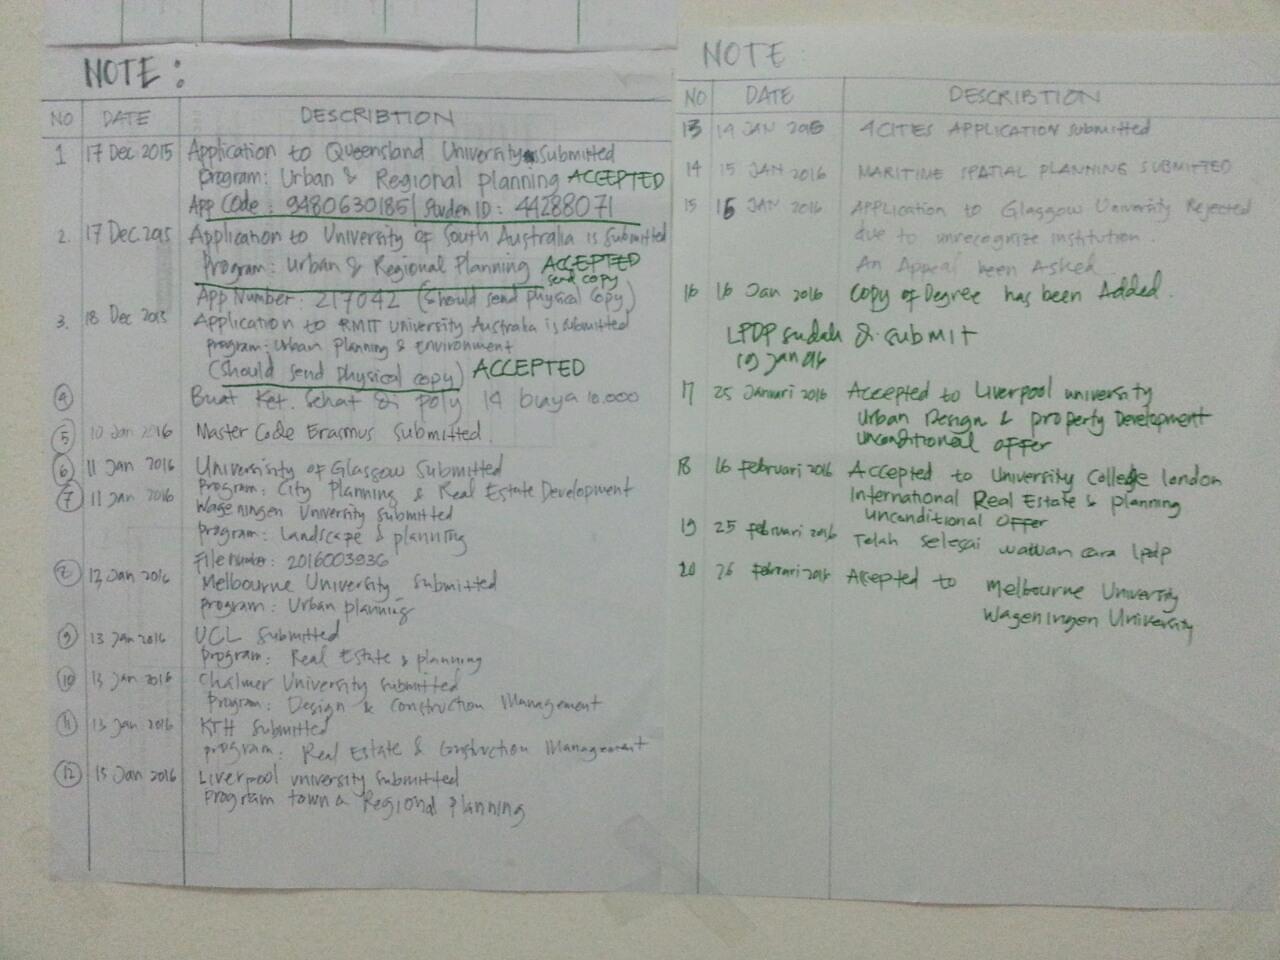 NOTE :
NO DATE DESCRIBTION
1 17 Dec 2015 Application to Queensland University Submitted
program: Urban & Regional planning ACCEPTED
App Code : 9480630185 | Studen ID : 44288071
2. 17 Dec.2015 Application to University of South Australia is Submitted
Program: Urban & Regional Planning ACCEPTED
send copy
App Number : 217042 (Should send physical copy)
3. 18 Dec 2015 Application to RMIT University Australia is submitted
program: Urban Planning & Environment
(should send physical copy) ACCEPTED
4 Buat Ket. Sehat di Poly 14 biaya 10.000
5 10 Jan 2016 Master Code Erasmus Submitted.
6 11 Jan 2016 University of Glasgow Submitted
Program: City Planning & Real Estate Development
7 11 Jan 2016 Wageningen University Submitted
program: Landscape & planning
File number : 2016003936
12 Jan 2016 Melbourne University Submitted
program: Urban planning
9 13 Jan 2016 UCL Submitted
program: Real Estate & planning
10 13 Jan 2016 Chalmer University submitted
program: Design & Construction Management
11 13 Jan 2016 KTH Submitted
program: Real Estate & Construction Management
12 15 Jan 2016 Liverpool university submitted
program town & Regional Planning
NOTE :
NO DATE DESCRIBTION
13 14 JAN 4CITIES APPLICATION submitted
14 15 JAN 2016 MARITIME SPATIAL PLANNING SUBMITTED
15 15 JAN 2016 APPLICATION to Glasgow University Rejected
due to unrecognize institution.
An Appeal been Asked
16 16 Jan 2016 Copy of Degree has been Added.
LPDP sudah di submit
19 Jan 016
17 25 Januari 2016 Accepted to Liverpool university
Urban Design & property Development
unconditional offer
18 16 februari 2016 Accepted to University College london
International Real Estate & planning
unconditional offer
19 25 februari 2016 Telah selesai wawan cara lpdp
20 26 februari 2016 Accepted to Melbourne University
Wageningen University